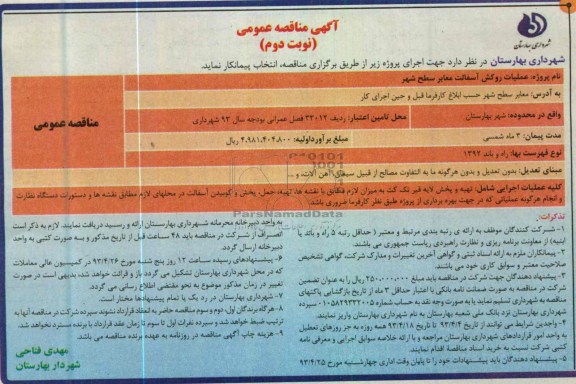 آگهی مناقصه عمومی
(نوبت دوم)
شهرداری بهارستان
شهرداری بهارستان در نظر دارد جهت اجرای پروژه زیر از طریق برگزاری مناقصه، انتخاب پیمانکار نماید.
نام پروژه: عملیات روکش آسفالت معابر سطح شهر
به آدرس: معابر سطح شهر حسب ابلاغ کارفرما قبل و حین اجرای کار
واقع در محدوده: شهر بهارستان
محل تامین اعتبار: ردیف ۳۳۰۱۲ فصل عمرانی بودجه سال ۹۳ شهرداری
مناقصه عمومی
مدت پیمان: ۳ ماه شمسی
مبلغ برآورد اولیه: ۴.۹۸۱.۴۰۴.۸۰۰ ریال
نوع فهرست بها: راه و باند ۱۳۹۳
مبنای تعدیل: بدون تعدیل و بدون هرگونه ما به التفاوت مصالح از قبیل سیمان، آهن آلات، و ...
کلیه عملیات اجرایی شامل: تهیه و پخش لایه قیر تک کت به میزان لازم مطابق با نقشه ها، تهیه، حمل، پخش و کوبیدن آسفالت در محلهای لازم مطابق نقشه ها و دستورات دستگاه نظارت
و انجام هرگونه عملیاتی که در جهت بهره برداری از پروژه طبق نظر کارفرما ضروری باشد.
ParsNamadData
تذکرات:
۱- شرکت کنندگان موظف به ارائه ی رتبه بندی مرتبط و معتبر (حداقل رتبه ۵ راه و باند یا
ابنیه) از معاونت برنامه ریزی و نظارت راهبردی ریاست جمهوری می باشند.
۲- پیمانکاران ملزم به ارائه اسناد ثبتی و گواهی آخرین تغییرات و مدارک شرکت، گواهی تشخیص
صلاحیت معتبر و سوابق کاری خود می باشند.
۳- پیشنهاد دهندگان جهت شرکت در مناقصه باید مبلغ ۲۵۰۰۰۰۰۰۰ ریال را به عنوان تضمین
شرکت در مناقصه به صورت ضمانت نامه بانکی با اعتبار حداقل ۳ ماه از تاریخ بازگشایی پاکتهای
مناقصه به شهرداری تسلیم نماید یا به صورت وجه نقد به حساب شماره ۰۱۰۵۸۲۹۳۳۲۰۰۵ - سپرده
شهرداری بهارستان نزد بانک ملی شعبه بهارستان به نام شهرداری بهارستان واریز نمایند.
۴- واجدین شرایط می توانند از تاریخ ۹۳/۴/۴ تا تاریخ ۹۳/۴/۱۸ همه روزه به جز روزهای تعطیل
به واحد امور قراردادهای شهرداری بهارستان مراجعه و با ارائه خلاصه سوابق اجرایی و معرفی نامه
کتبی شرکت نسبت به خرید اسناد مناقصه اقدام نمایند.
۵- پیشنهاد دهندگان باید پیشنهادات خود را تا پایان وقت اداری چهارشنبه مورخ ۹۳/۴/۲۵
به واحد دبیرخانه محرمانه شهرداری بهارستان ارائه و رسید دریافت نمایند. لازم به ذکر است
انصراف از شرکت در مناقصه باید ۴۸ ساعت قبل از تاریخ مذکور و به صورت کتبی به واحد
دبیرخانه ارسال گردد.
۶- پیشنهادهای رسیده ساعت ۱۲ روز پنج شنبه مورخ ۹۳/۴/۲۶ در کمیسیون عالی معاملات
که در محل شهرداری بهارستان تشکیل می گردد باز و قرائت خواهد شد، بدیهی است در صورت
تغییر در زمان مذکور موضوع به نحو مقتضی اطلاع رسانی می گردد.
۷- شهرداری بهارستان در رد یک یا تمام پیشنهادها مختار است.
۸- هرگاه برندگان اول، دوم و سوم مناقصه حاضر به انعقاد قرارداد نشوند سپرده شرکت در مناقصه آنها به
ترتیب ضبط خواهد شد و سپرده نفرات اول تا سوم تا زمان عقد قرارداد با برنده مسترد نخواهد شد.
۹- هزینه چاپ آگهی مناقصه در روزنامه به عهده برنده مناقصه می باشد.
مهدی فتاحی
شهردار بهارستان